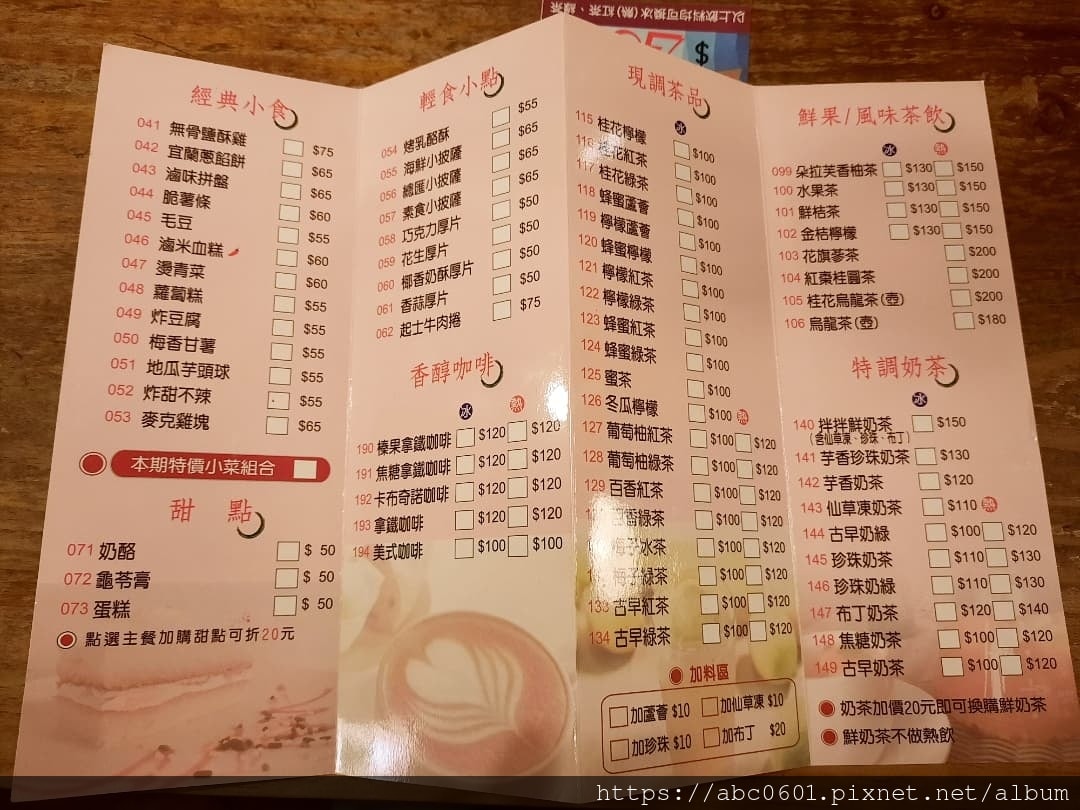 以上飲料均可換冰(熱)紅茶、綠茶
$
經典小食
041 無骨鹽酥雞 $75
042 宜蘭蔥餡餅 $65
043 滷味拼盤 $65
044 脆薯條 $60
045 毛豆 $55
046 滷米血糕 $60
047 燙青菜 $60
048 蘿蔔糕 $55
049 炸豆腐 $55
050 梅香甘薯 $55
051 地瓜芋頭球 $55
052 炸甜不辣 $55
053 麥克雞塊 $65
本期特價小菜組合
甜 點
071 奶酪 $ 50
072 龜苓膏 $ 50
073 蛋糕 $ 50
點選主餐加購甜點可折20元
輕食小點
054 烤乳酪酥 $55
055 海鮮小披薩 $65
056 總匯小披薩 $65
057 素食小披薩 $65
058 巧克力厚片 $50
059 花生厚片 $50
060 椰香奶酥厚片 $50
061 香蒜厚片 $50
062 起士牛肉捲 $75
香醇咖啡
冰 熱
190 榛果拿鐵咖啡 $120 $120
191 焦糖拿鐵咖啡 $120 $120
192 卡布奇諾咖啡 $120 $120
193 拿鐵咖啡 $120 $120
194 美式咖啡 $100 $100
現調茶品
冰
115 桂花檸檬 $100
116 桂花紅茶 $100
117 桂花綠茶 $100
118 蜂蜜蘆薈 $100
119 檸檬蘆薈 $100
120 蜂蜜檸檬 $100
121 檸檬紅茶 $100
122 檸檬綠茶 $100
123 蜂蜜紅茶 $100
124 蜂蜜綠茶 $100
125 蜜茶 $100
126 冬瓜檸檬 $100 熱
127 葡萄柚紅茶 $100 $120
128 葡萄柚綠茶 $100 $120
129 百香紅茶 $100 $120
百香綠茶 $100 $120
梅子冰茶 $100 $120
梅子綠茶 $100 $120
133 古早紅茶 $100 $120
134 古早綠茶 $100 $120
加料區
加蘆薈 $10 加仙草凍 $10
加珍珠 $10 加布丁 $20
鮮果/風味茶飲
冰 熱
099 朵拉芙香柚茶 $130 $150
100 水果茶 $130 $150
101 鮮桔茶 $130 $150
102 金桔檸檬 $130 $150
103 花旗蔘茶 $200
104 紅棗桂圓茶 $200
105 桂花烏龍茶(壺) $200
106 烏龍茶(壺) $180
特調奶茶
冰
140 拌拌鮮奶茶 $150
(含仙草凍、珍珠、布丁)
141 芋香珍珠奶茶 $130
142 芋香奶茶 $120
143 仙草凍奶茶 $110 熱
144 古早奶綠 $100 $120
145 珍珠奶茶 $110 $130
146 珍珠奶綠 $110 $130
147 布丁奶茶 $120 $140
148 焦糖奶茶 $100 $120
149 古早奶茶 $100 $120
奶茶加價20元即可換購鮮奶茶
鮮奶茶不做熱飲
https://abc0601.pixnet.net/album